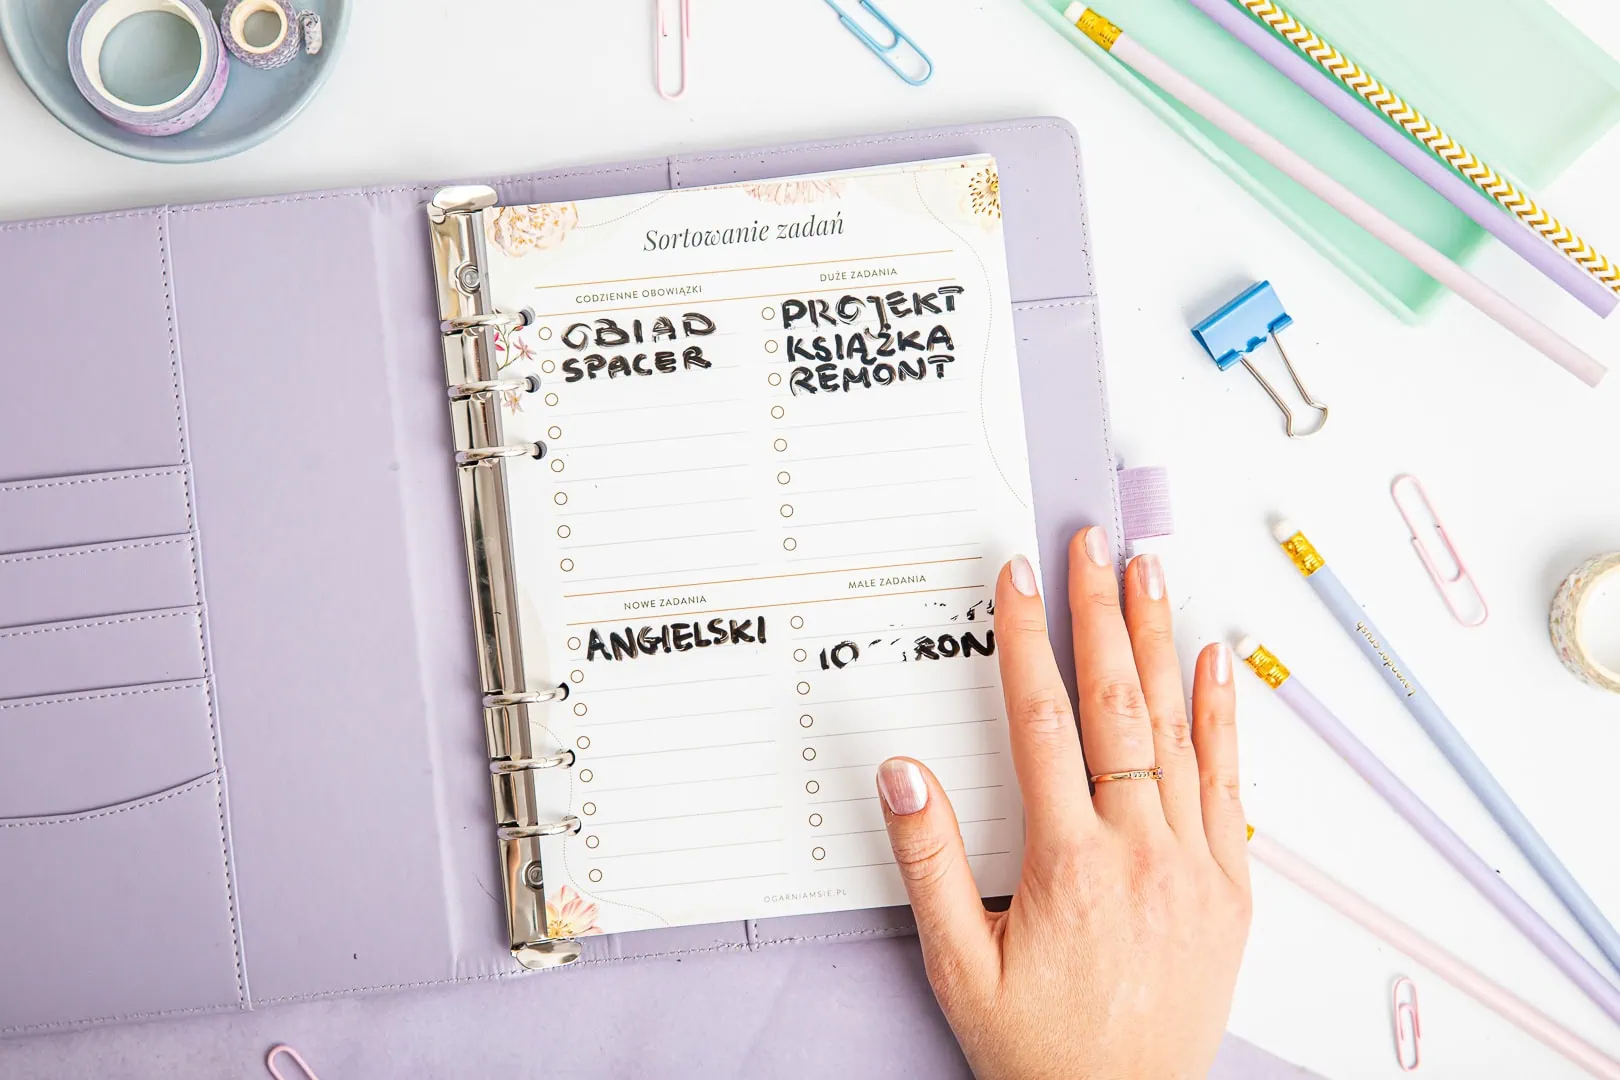 Sortowanie zadań
CODZIENNE OBOWIĄZKI
OBIAD
SPACER
DUŻE ZADANIA
PROJEKT
KSIĄŻKA
REMONT
NOWE ZADANIA
ANGIELSKI
MAŁE ZADANIA
10
OGARNIAMSIE.PL
Lavander crush